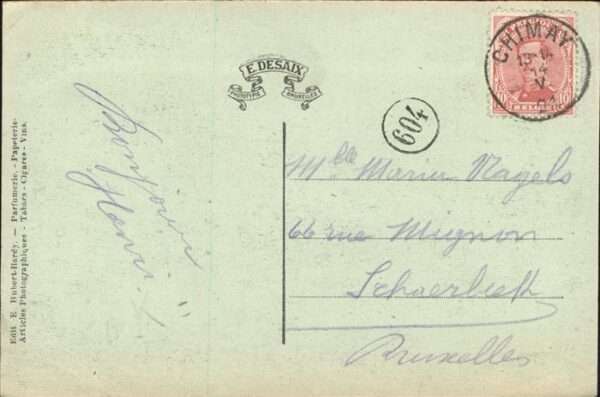 Edit. E. Hubert-Hardy. — Parfumerie. - Papeterie-
Articles Photographiques - Tabacs - Cigares - Vins.
Bonjour
Henri
E. DESAIX
PHOTOTYPIE BRUXELLES
604
CHIMAY
Mlle Maria Nagels
66 rue Mignon
Schaerbeek
Bruxelles